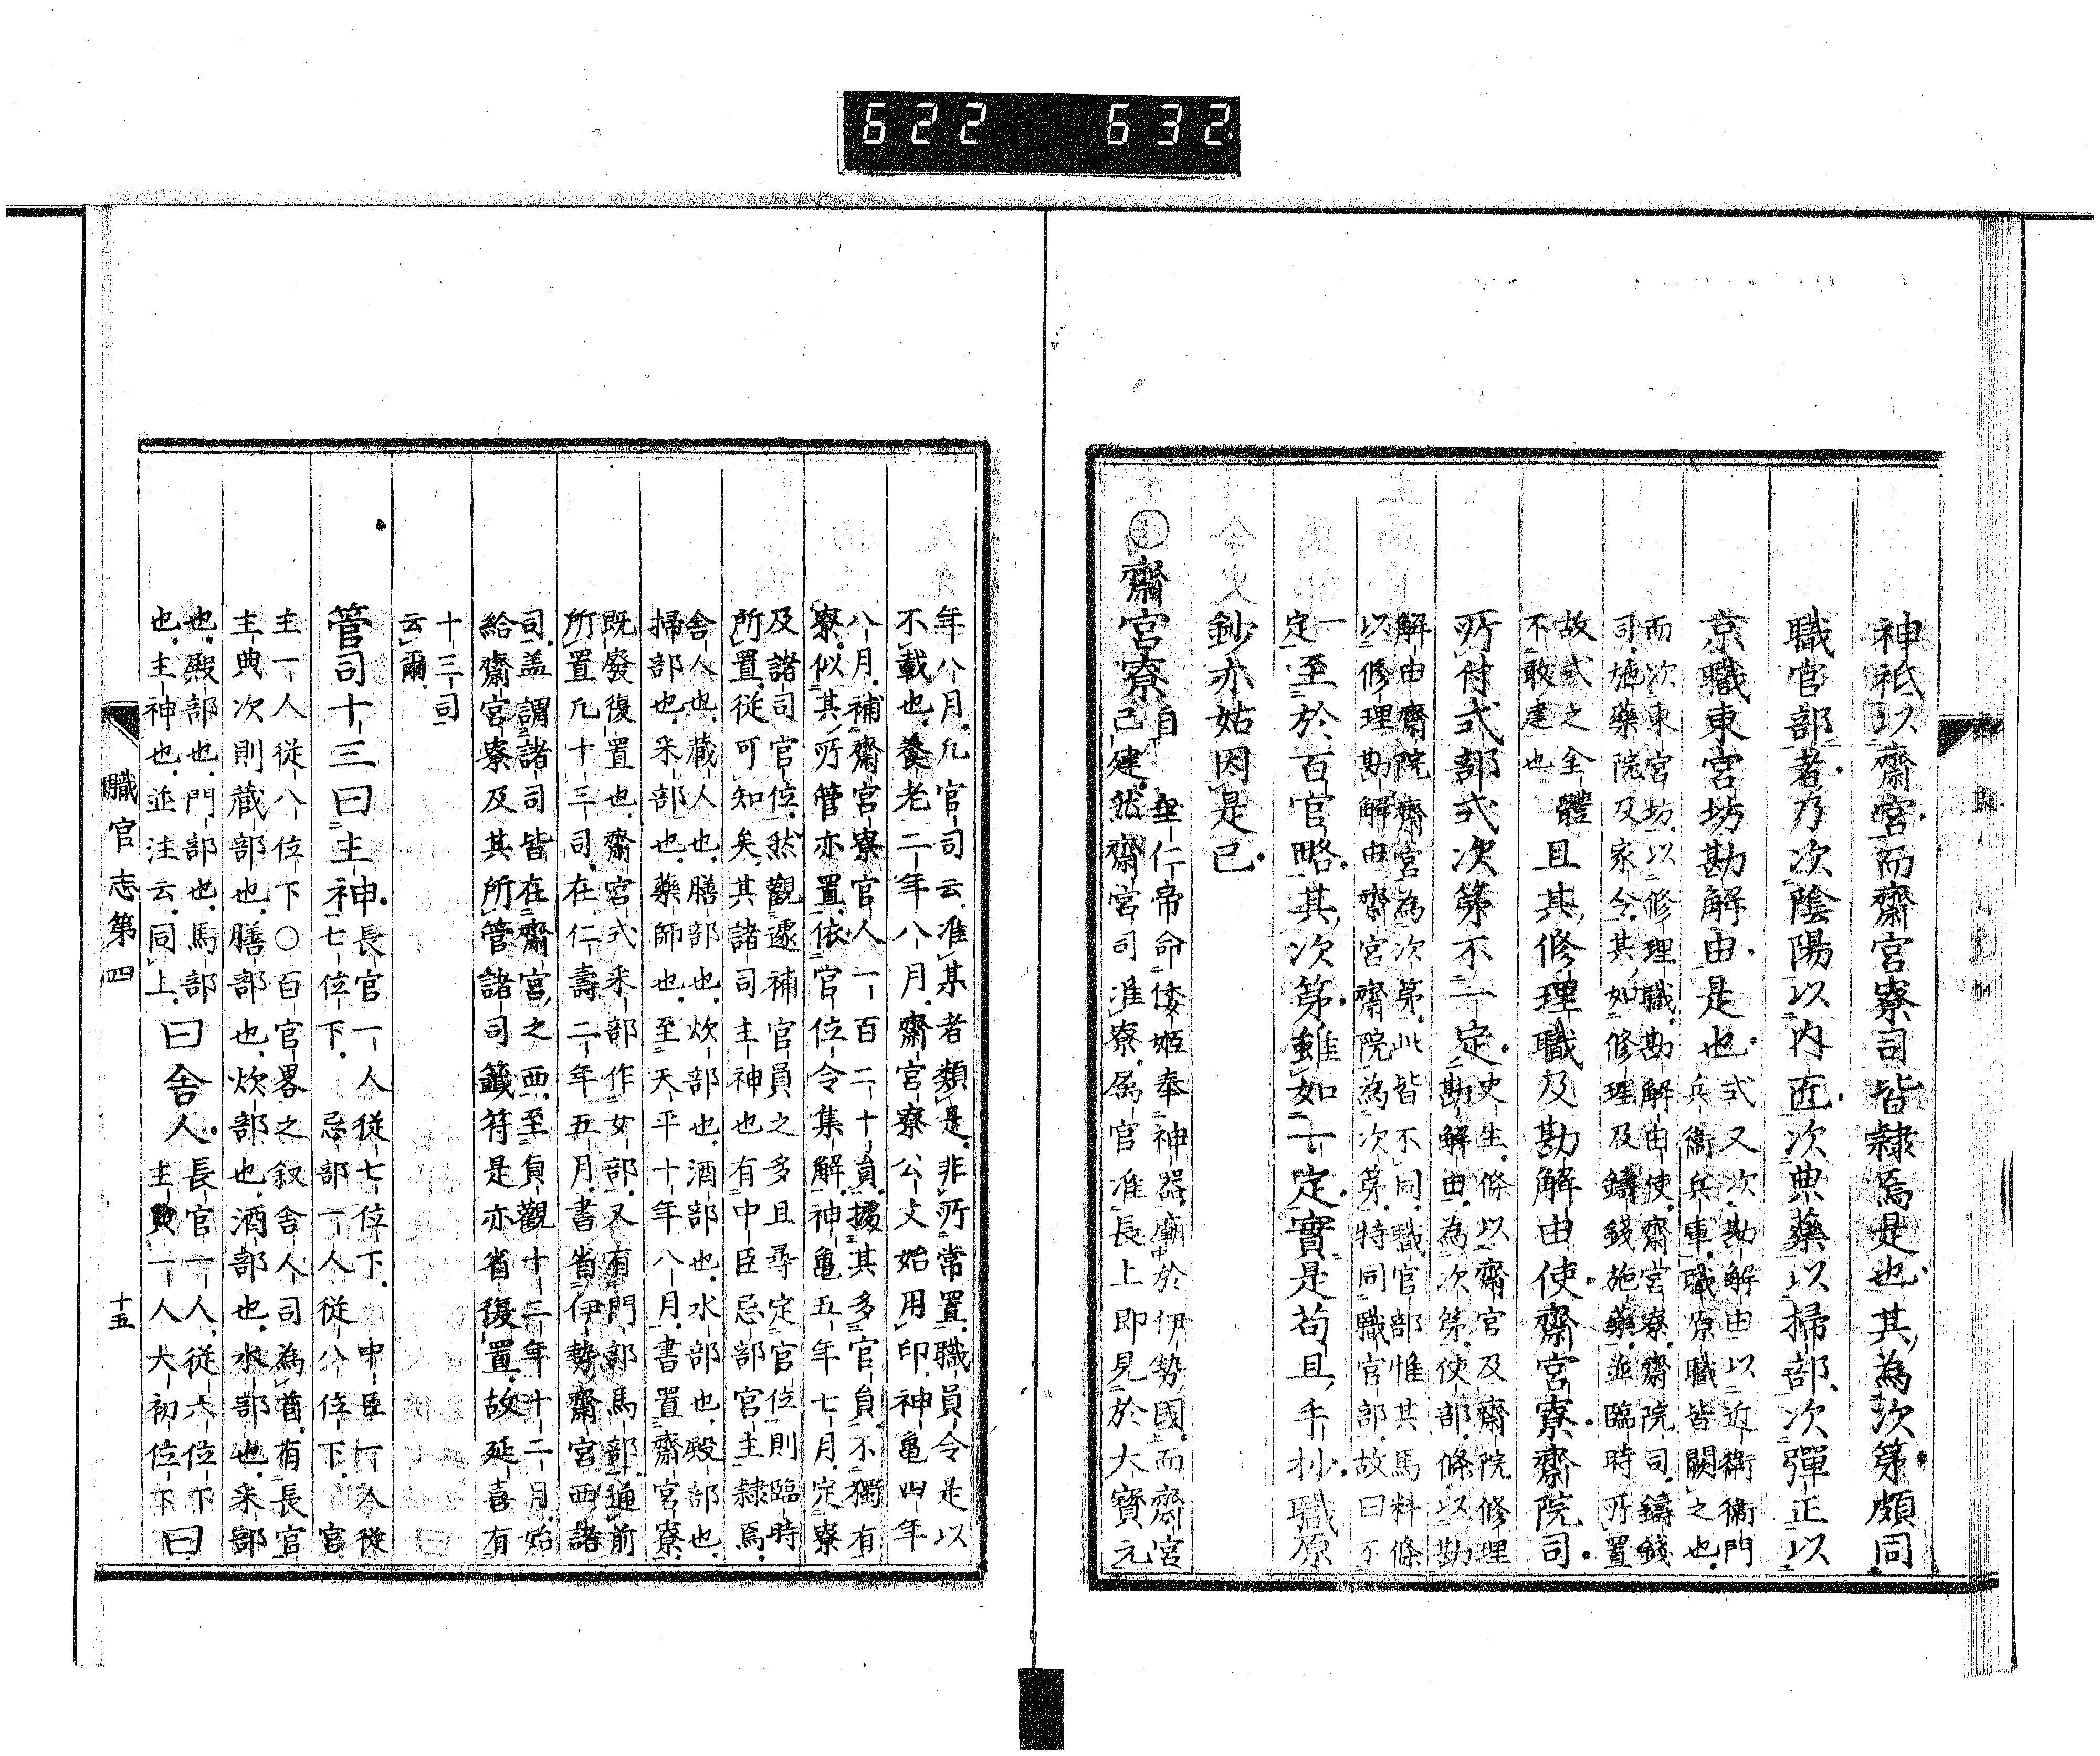 622 632
神祇以齋宮而齋宮寮司皆隷焉是也其為次第頗同
職官部者乃次陰陽以内匠次典藥以掃部次彈正以
京職東宮坊勘解由是也式又次勘解由以近衛衛門
兵衛兵庫職原職皆闕之也
而次東宮坊以修理職勘解由使齋宮寮齋院司鑄錢
司施藥院及家令其如修理及鑄錢施藥並臨時所置
故式之全體
不敢違也
且其修理職及勘解由使齋宮寮齋院司
所付式部式次第不一定史生條以齋官及齋院修理
勘解由為次第使部條以勘
解由齋院齋宮為次第此皆不同職官部惟其馬料條
以修理勘解由齋宮齋院為次第特同職官部故曰不
一
定
至於百官略其次第雖如一定實是苟且手抄職原
鈔亦姑因是已
○齋宮寮自垂仁帝命倭姬奉神器廟於伊勢國而齋宮
已建然齋宮司准寮屬官准長上即見於大寶元
年八月凡官司云准某者類是非所常置職員令是以
不載也養老二年八月齋宮寮公文始用印神亀四年
八月補齋宮寮官人一百二十員據其多官負不獨有
寮似其所管亦置依官位令集解神亀五年七月定寮
及諸司官位然觀遽補官員之多且尋定官位則臨時
所置從可知矣其諸司主神也有中臣忌部官主隷焉
舍人也藏人也膳部也炊部也酒部也水部也殿部也
掃部也釆部也藥師也至天平十年八月書置齋宮寮
既廢復置也齋宮式釆部作女部又有門部馬部通前
所置凡十三司在仁壽二年五月書省伊勢齋宮西諸
司盖謂諸司皆在齋宮之西至貞觀十二年十二月始
給齋宮寮及其所管諸司籤符是亦省復置故延喜有
十三司
云爾
管司十三曰主神長官一人從七位下中臣一人從
七位下忌部一人從八位下宮
主一人從八位下○百官畧之叙舍人司為首有長官
主典次則藏部也膳部也炊部也酒部也水部也釆部
也殿部也門部也馬部
也主神也並注云同上
曰舍人長官一人從六位下
主典一人大初位下
曰
職官志第四
十五